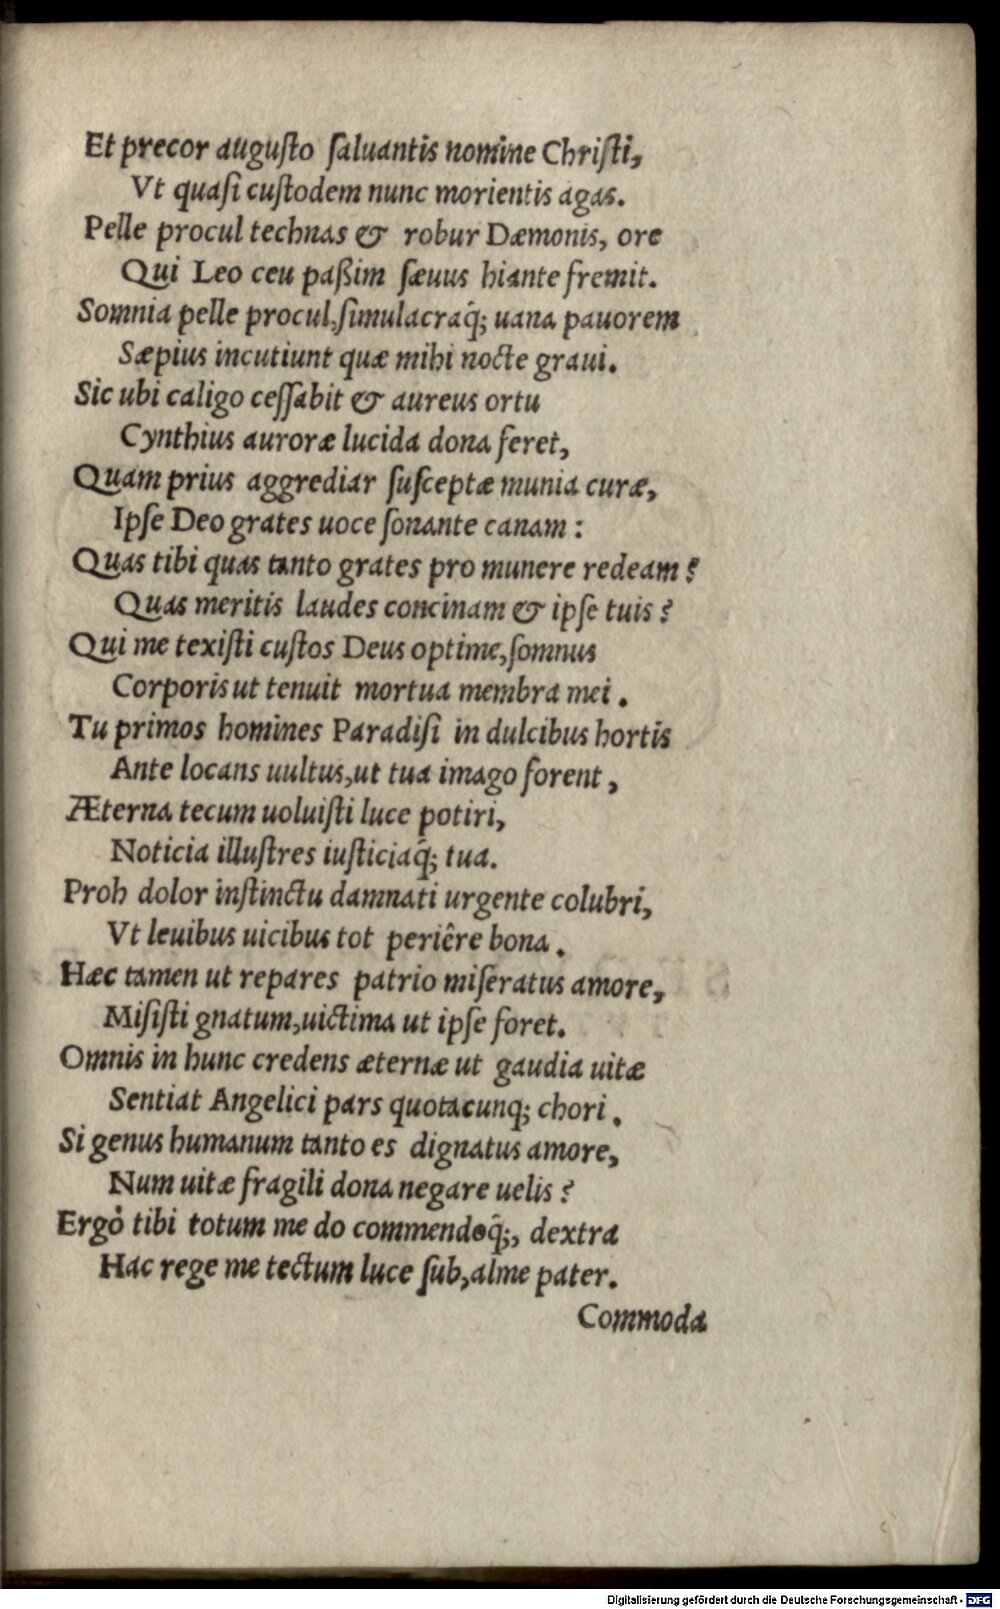 Et precor auguſto ſaluantis nomine Chriſti,
Vt quaſi cuſtodem nunc morientis agas.
Pelle procul technas & robur Dæmonis, ore
Qui Leo ceu paßim ſæuus hiante fremit.
Somnia pelle procul, ſimulacraq̃; uana pauorem
Sæpius incutiunt quæ mihi nocte graui.
Sic ubi caligo ceſſabit & aureus ortu
Cynthius auroræ lucida dona feret,
Quam prius aggrediar ſuſceptæ munia curæ,
Ipſe Deo grates uoce ſonante canam:
Quas tibi quas tanto grates pro munere redeam?
Quas meritis laudes concinam & ipſe tuis?
Qui me texiſti cuſtos Deus optime, ſomnus
Corporis ut tenuit mortua membra mei.
Tu primos homines Paradiſi in dulcibus hortis
Ante locans uultus, ut tua imago forent,
Æterna tecum uoluiſti luce potiri,
Noticia illuſtres iuſticiaq̃; tua.
Proh dolor inſtinctu damnati urgente colubri,
Vt leuibus uicibus tot periêre bona.
Hæc tamen ut repares patrio miſeratus amore,
Miſiſti gnatum, uictima ut ipſe foret.
Omnis in hunc credens æternæ ut gaudia uitæ
Sentiat Angelici pars quotacunq; chori.
Si genus humanum tanto es dignatus amore,
Num uitæ fragili dona negare uelis?
Ergò tibi totum me do commendoq̃;, dextra
Hac rege me tectum luce ſub, alme pater.
Commoda
Digitalisierung gefördert durch die Deutsche Forschungsgemeinschaft - DFG